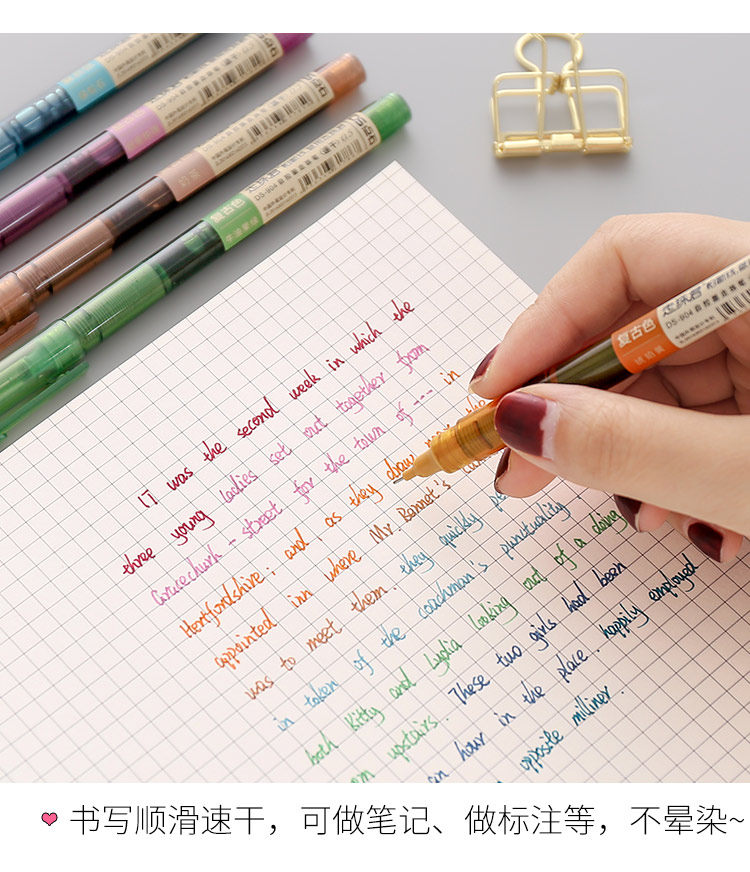 DS-904
复古色
DS-904
复古色
IT was the second week in which the
three young ladies set out together from
Gracechurh - street for the town of --- in
Hertfordshire; and as they draw
appointed inn where Mr. Bennet's
was to meet them. they quickly
in token of the coachman's punctuality
both Kitty and Lydia looking out of a dining
upstairs. These two girls had been
an hour in the place. happily employed
opposite milliner.
书写顺滑速干，可做笔记、做标注等，不晕染~